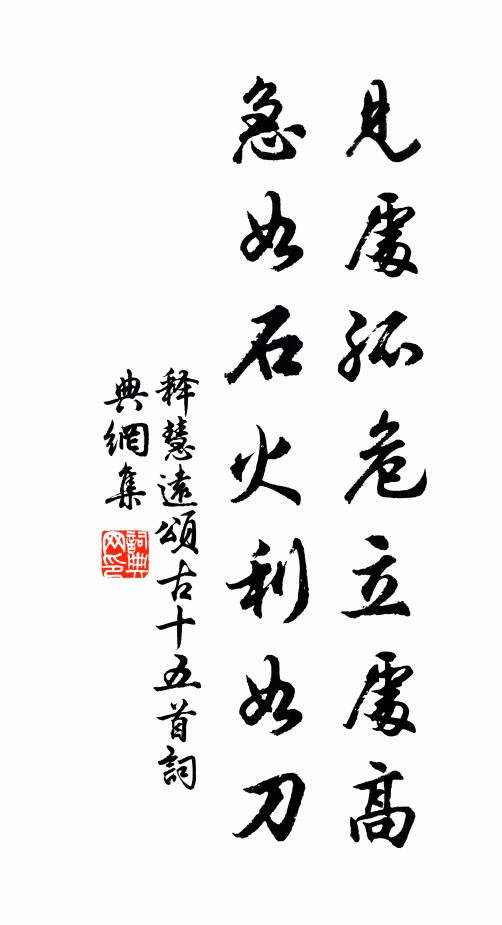 見處孤危立處高
急如石火利如刀
释慧遠頌古十五首詞
典網集
詞典网印